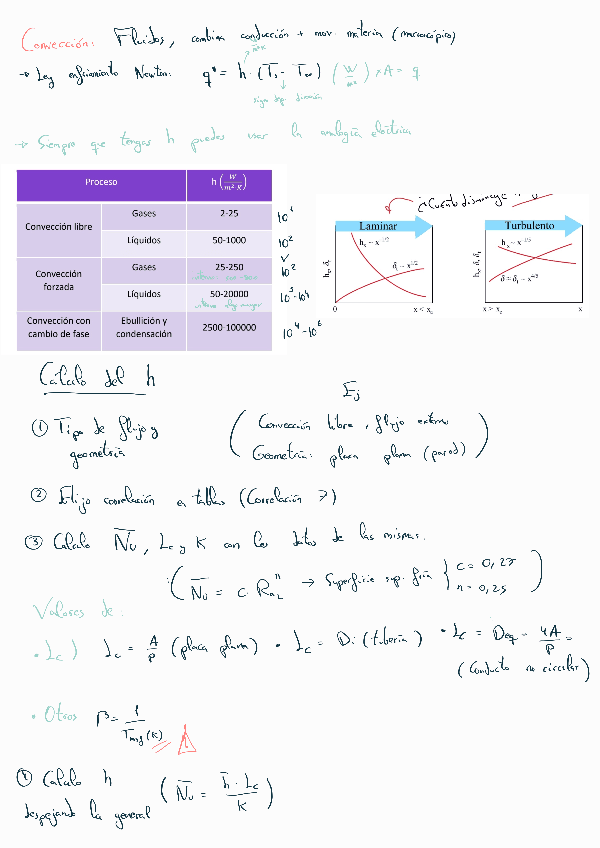 Convección: Fluidos, combina conducción + mov. materia (macroscópico)
→ Ley enfriamiento Newton: q" = h · (Ts - T∞) (W/m²) × A = q
signo dep. dirección
→ Siempre que tengas h puedes usar la analogía eléctrica
Proceso h (W/m²·K)
Convección libre Gases 2-25 10¹
Líquidos 50-1000 10²
Convección forzada Gases 25-250 10²
Líquidos 50-20000 10³-10⁴
Convección con cambio de fase Ebullición y condensación 2500-100000 10⁴-10⁶
Cuanto disminuye
Laminar
hx ~ x^-1/2
δt ~ x^1/2
hx, δt
0 x < xc
Turbulento
hx ~ x^-1/5
δ ≈ δt ~ x^4/5
hx, δ, δt
x > xc x
Cálculo del h
Ej
① Tipo de flujo y geometría
(Convección libre, flujo externo
Geometría: placa plana (pared))
② Elijo correlación en tablas (Correlación 7)
③ Calculo N̅u, Lc y K con los datos de las mismas.
(N̅u = C · RaLⁿ → Superficie sup. fría { C = 0,27
n = 0,25)
Valores de:
• Lc) Lc = A/P (placa plana) • Lc = Di (tubería) • Lc = Deq = 4A/P =
(Conducto no circular)
• Otros β = 1/Tmf (K)
④ Calculo h
despejando la general (N̅u = h̅ · Lc/K)